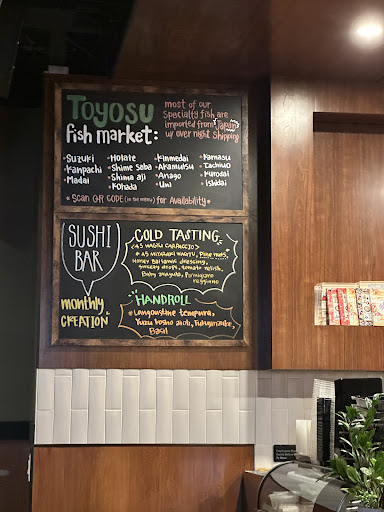 Toyosu
fish market:
most of our
Specialty fish are
imported from Japan
w/ over night Shipping
• Suzuki • Hotate • Kinmedai • Kamasu
• Kanpachi • Shime Saba • Akamutsu • Tachiuo
• Madai • Shima aji • Anago • Kurodai
• Kohada • Uni • Ishidai
* Scan QR CODE (in the menu) for Availability *
SUSHI
BAR
monthly
CREATION
COLD TASTING
<A5 WAGYU CARPACCIO>
* A5 MIYAZAKI WAGYU, Pine nuts,
Honey Balsamic dressing,
Sweety drops, tomato relish,
Baby arugula, Parmigiano
reggiano
HANDROLL
* Langoustine tempura,
Yuzu kosho aioli, Fukujinzuke,
Basil